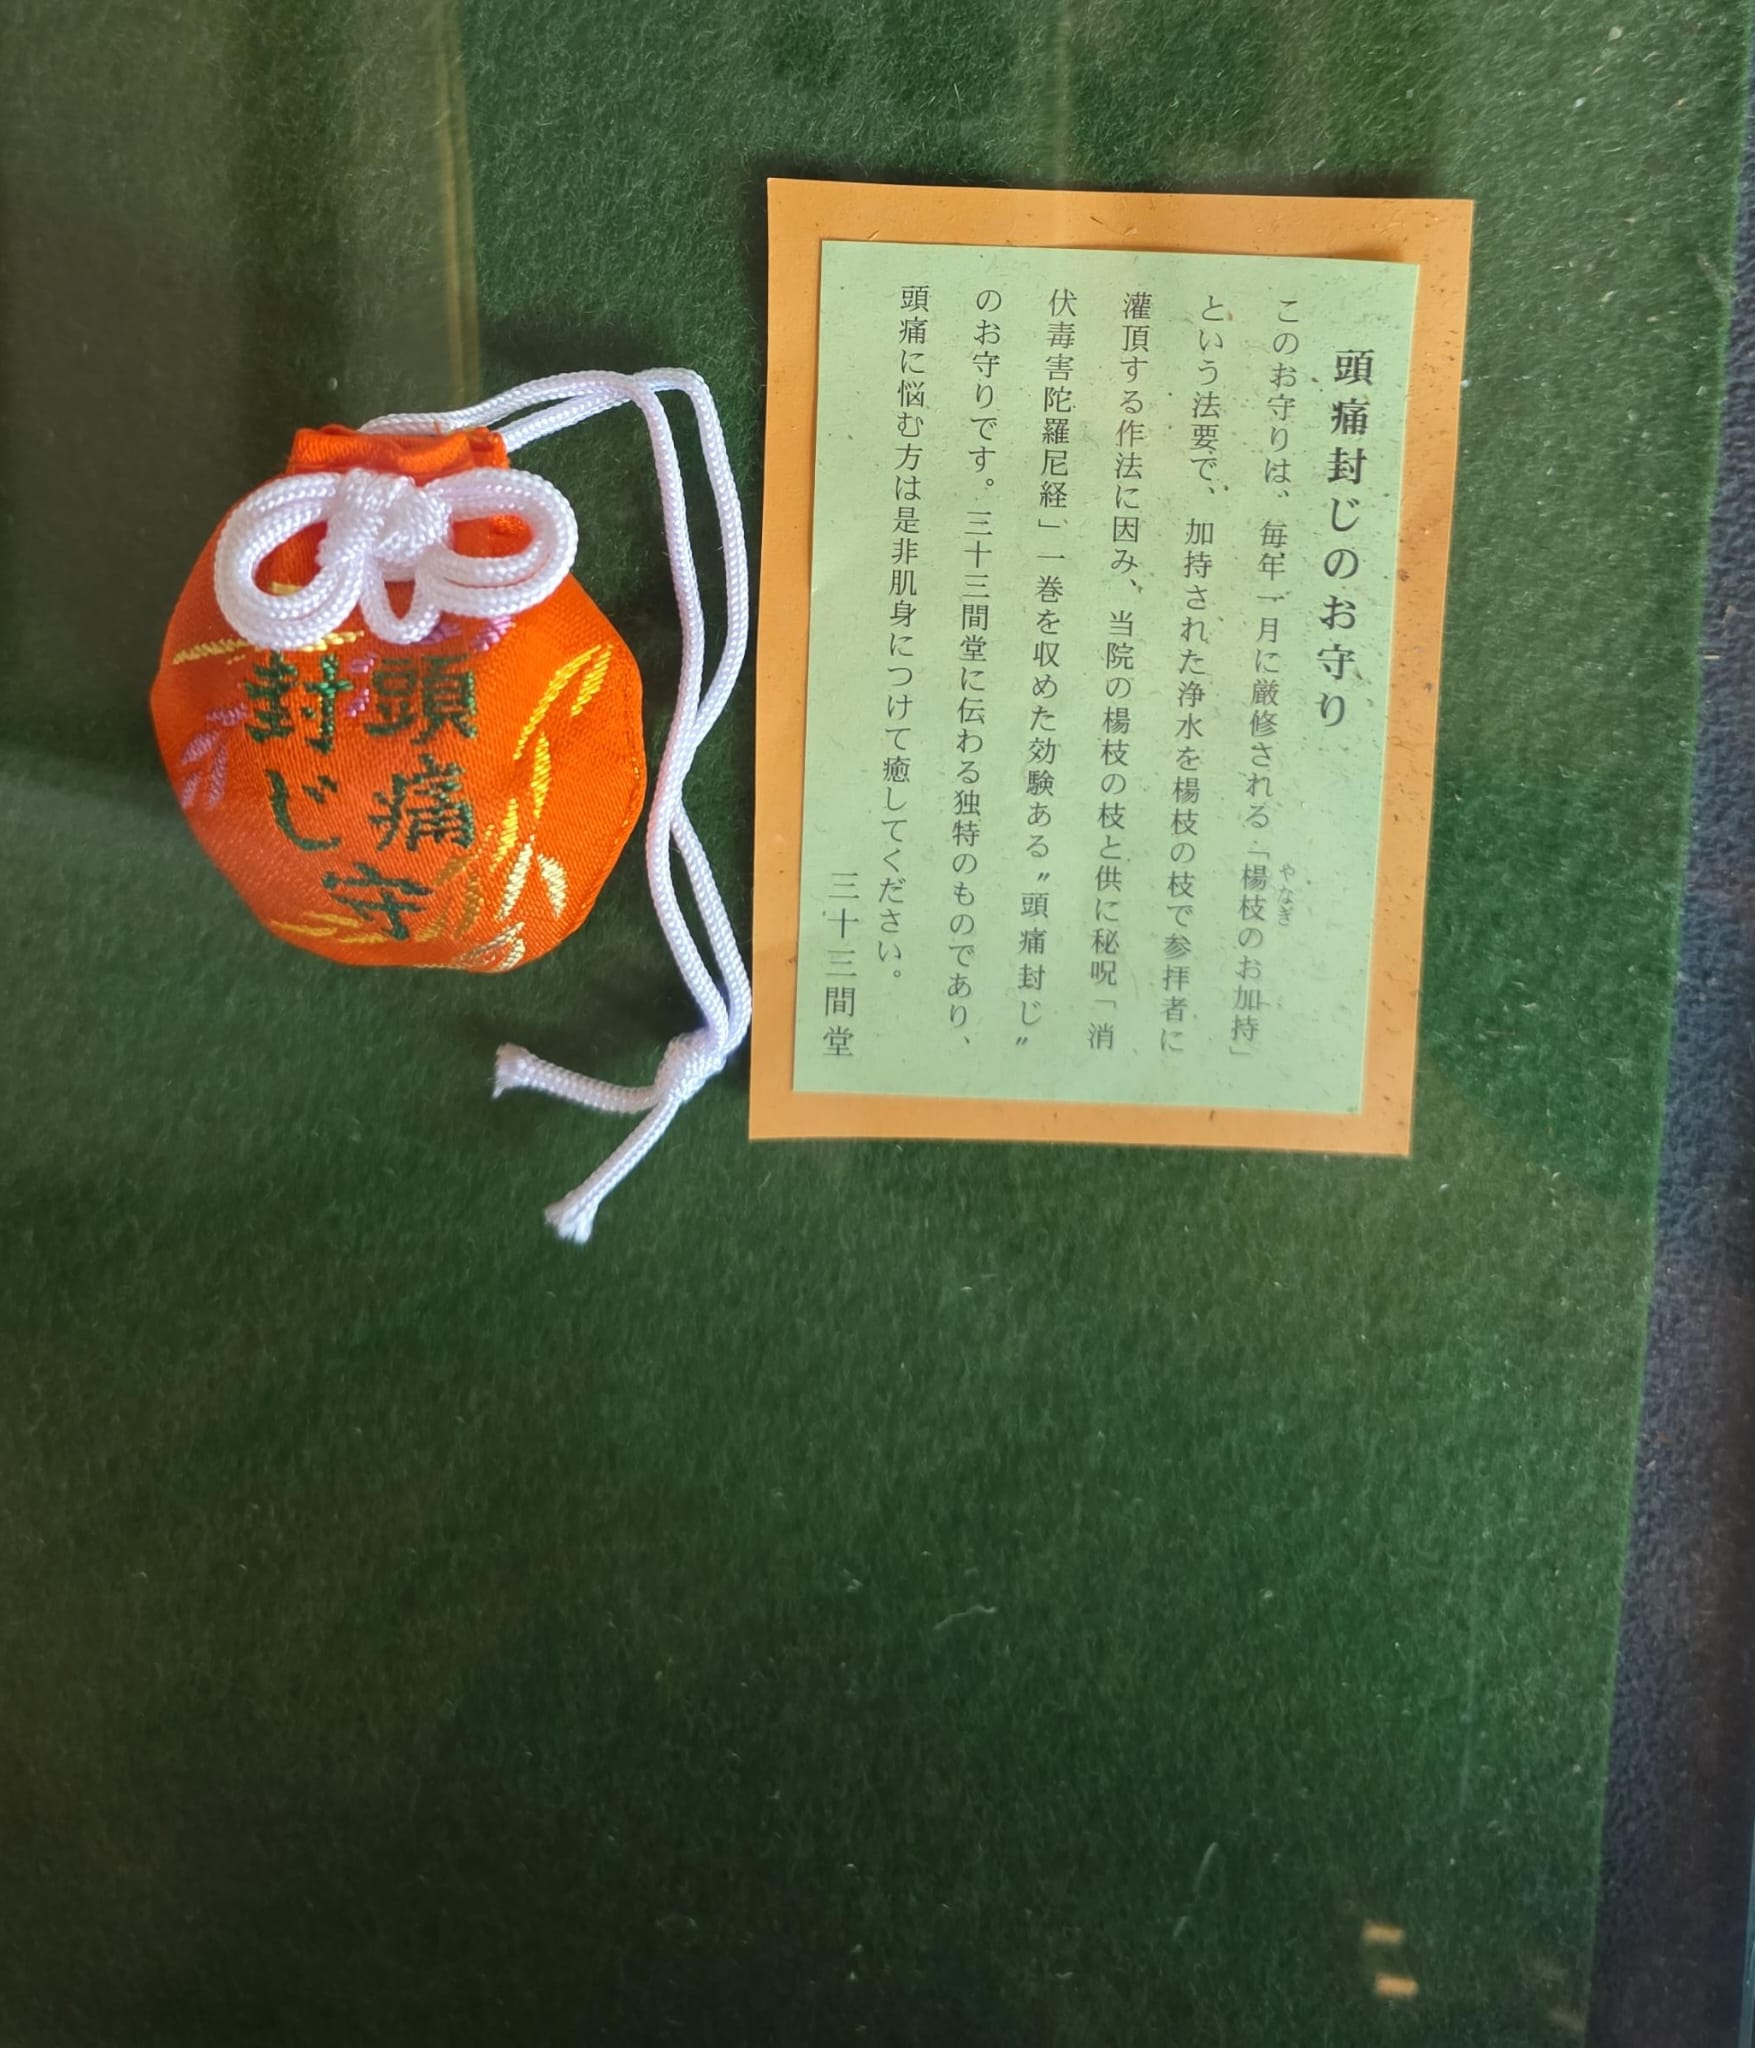 頭痛封じのお守り
このお守りは、毎年一月に厳修される「楊枝のお加持」
やなぎ
という法要で、加持された浄水を楊枝の枝で参拝者に
灌頂する作法に因み、当院の楊枝の枝と供に秘呪「消
伏毒害陀羅尼経」一巻を収めた効験ある〝頭痛封じ〟
のお守りです。三十三間堂に伝わる独特のものであり、
頭痛に悩む方は是非肌身につけて癒してください。
三十三間堂
頭痛
封じ
守